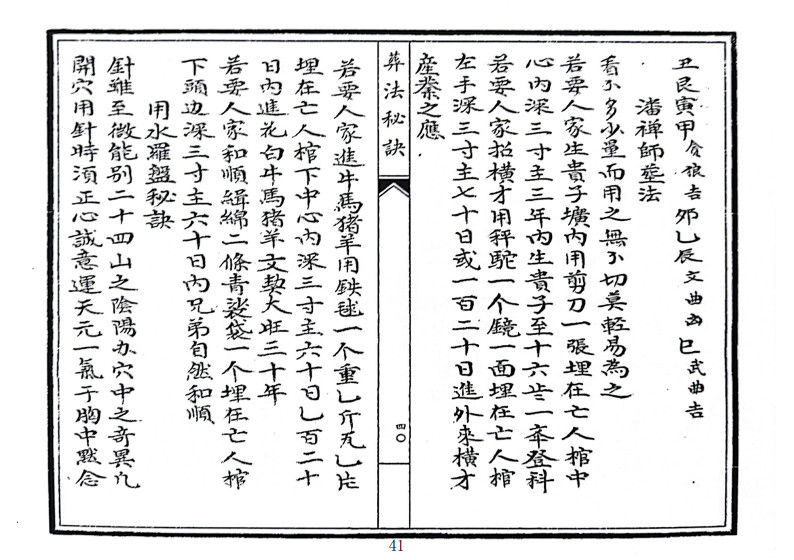 丑艮寅甲貪狼吉 夘乙辰文曲凶 巳武曲吉
潘禅師葬法
看々多少量而用之無不切莫輕易為之
若要人家生貴子壙內用剪刀一張埋在亡人棺中
心內深三寸主三年內生貴子至十六岁一举登科
若要人家招横才用秤駝一个鏡一面埋在亡人棺
左手深三寸主七十日或一百二十日進外來横才
産業之應
葬法秘訣
四〇
若要人家進牛馬猪羊用鉄毬一个重乙斤瓦乙片
埋在亡人棺下中心內深三寸主六十日乙百二十
日內進花白牛馬猪羊文契大旺三十年
若要人家和順緝綿二條青裟袋一个埋在亡人棺
下頭边深三寸主六十日內兄弟自然和順
用水羅盤秘訣
針雖至微能别二十四山之陰陽办穴中之奇異凢
開穴用針時須正心誠意運天元一氣于胸中黙念
41